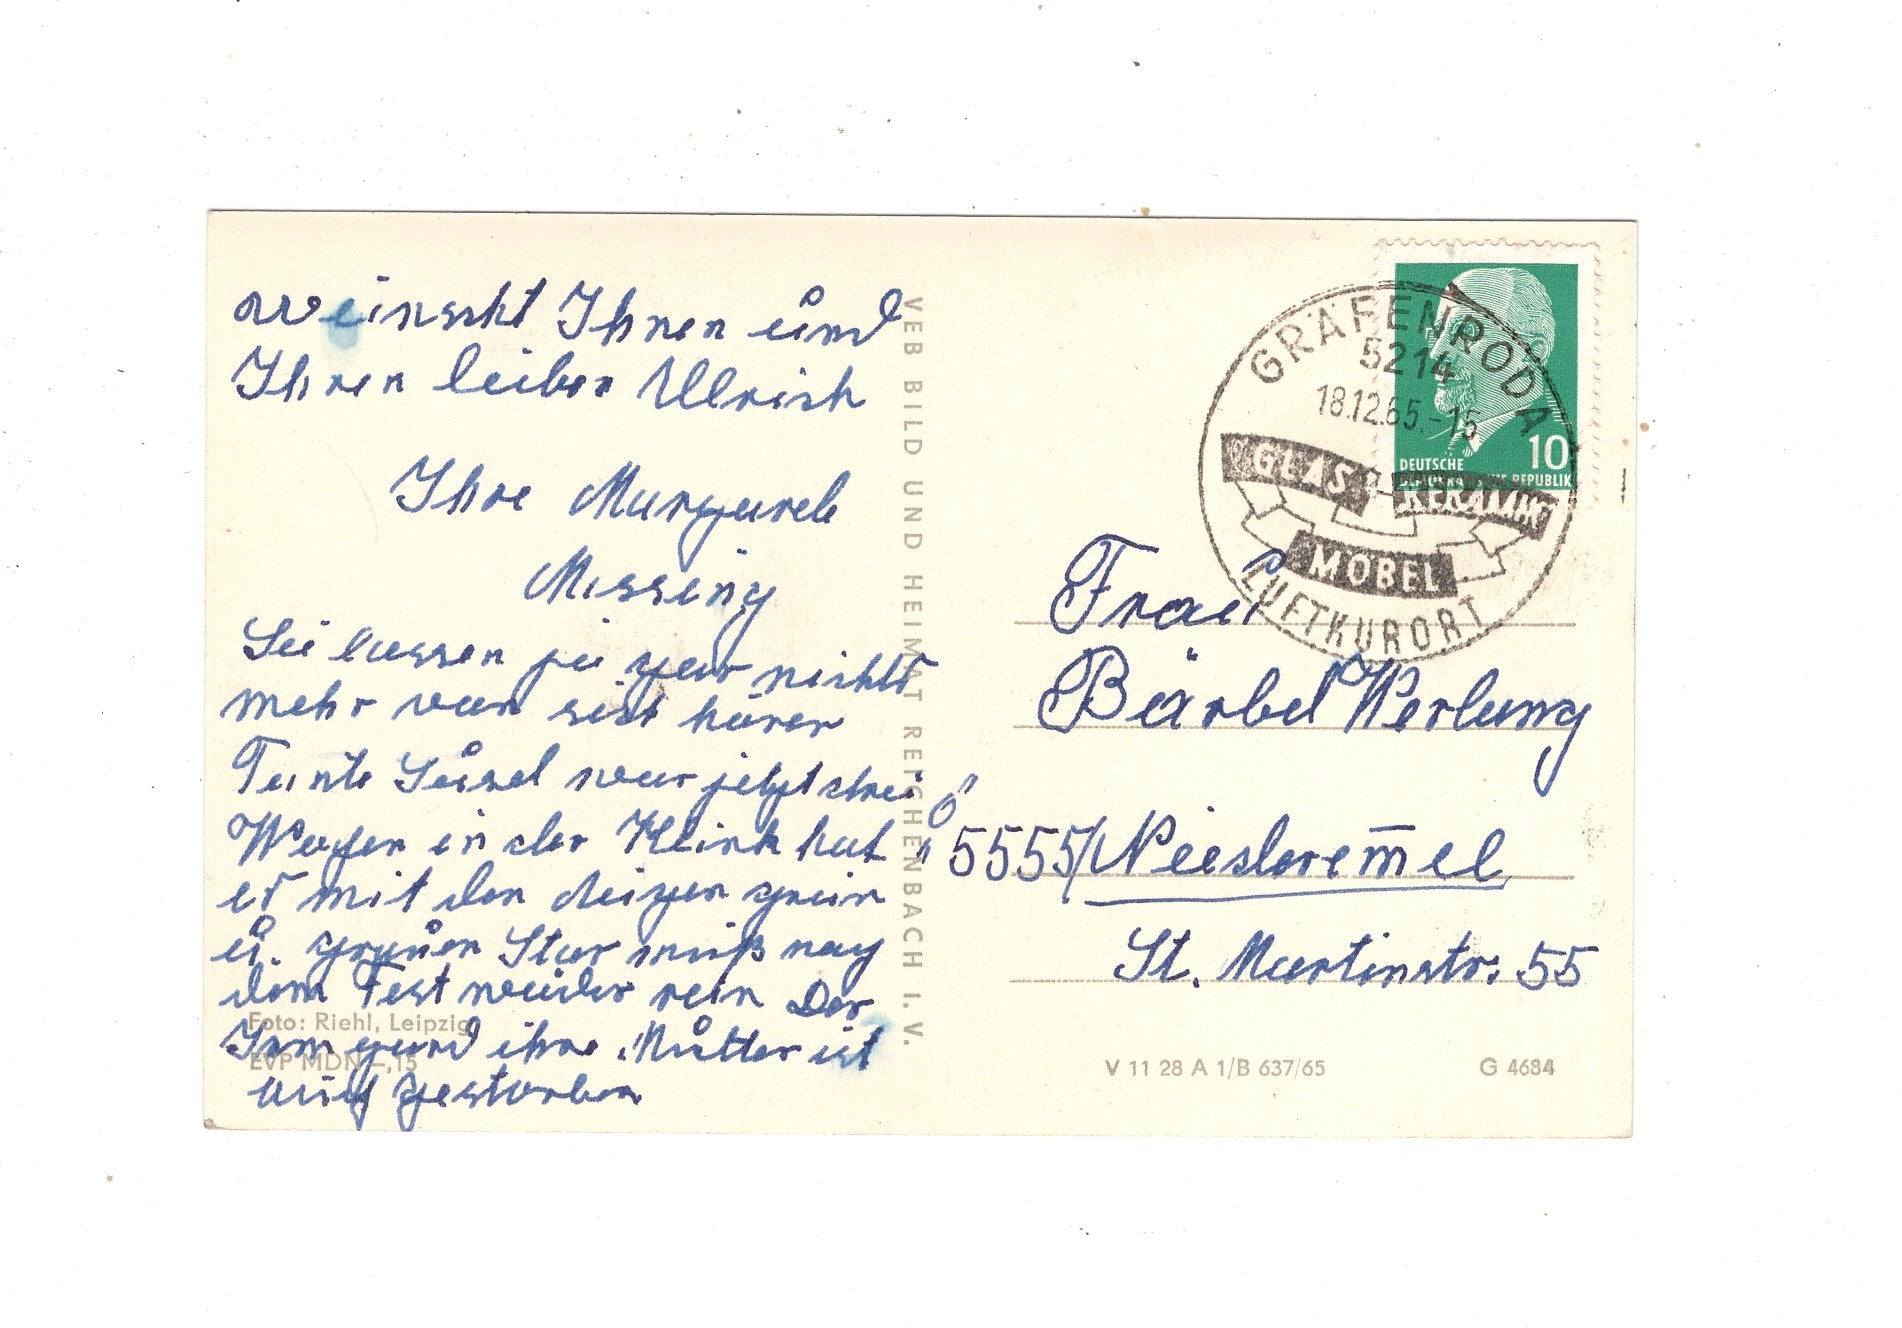 wünscht Ihnen und
Ihren lieben Ullrich
Ihre Margareb
Missing
Sie lassen ja gar nichts
mehr von sich hören
Tante Güssel war jetzt drei
in der Klinik hat
er mit den Augen grün
ü. grauen Star muß nag
dem Fest wieder rein Der
Irmgard ihre Mutter ist
auch gestorben
Foto: Riehl, Leipzig
EVP MDN –,15
VEB BILD UND HEIMAT REICHENBACH I. V.
GRÄFENRODA
5214
18.12.65.-15
GLAS - KERAMIK
MÖBEL
LUFTKURORT
10
DEUTSCHE
DEMOKRATISCHE REPUBLIK
Frau
Bärbel Werlung
5555/
St. Martinstr. 55
V 11 28 A 1/B 637/65
G 4684